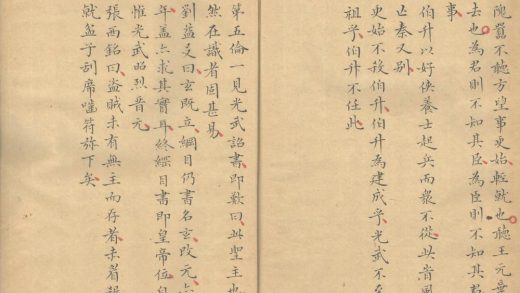 隗囂不聽方望事更始輕就也聽王元
去也為君則不知其臣為臣則不知其君
事
伯升以好俠養士起兵而衆不從此
亡秦又別
更始不殺伯升伯升為建成乎光武不
祖乎伯升不任此
第五倫一見光武詔書即歎曰此聖主也
然在識者固甚易
劉益曰玄既立綱目仍書名玄改元
年盖亦求其實耳終綱目書即皇帝位
惟光武昭烈晉元
張西銘曰盗賊未有無主而存者赤眉
就盆子刮席嗤符弥下矣